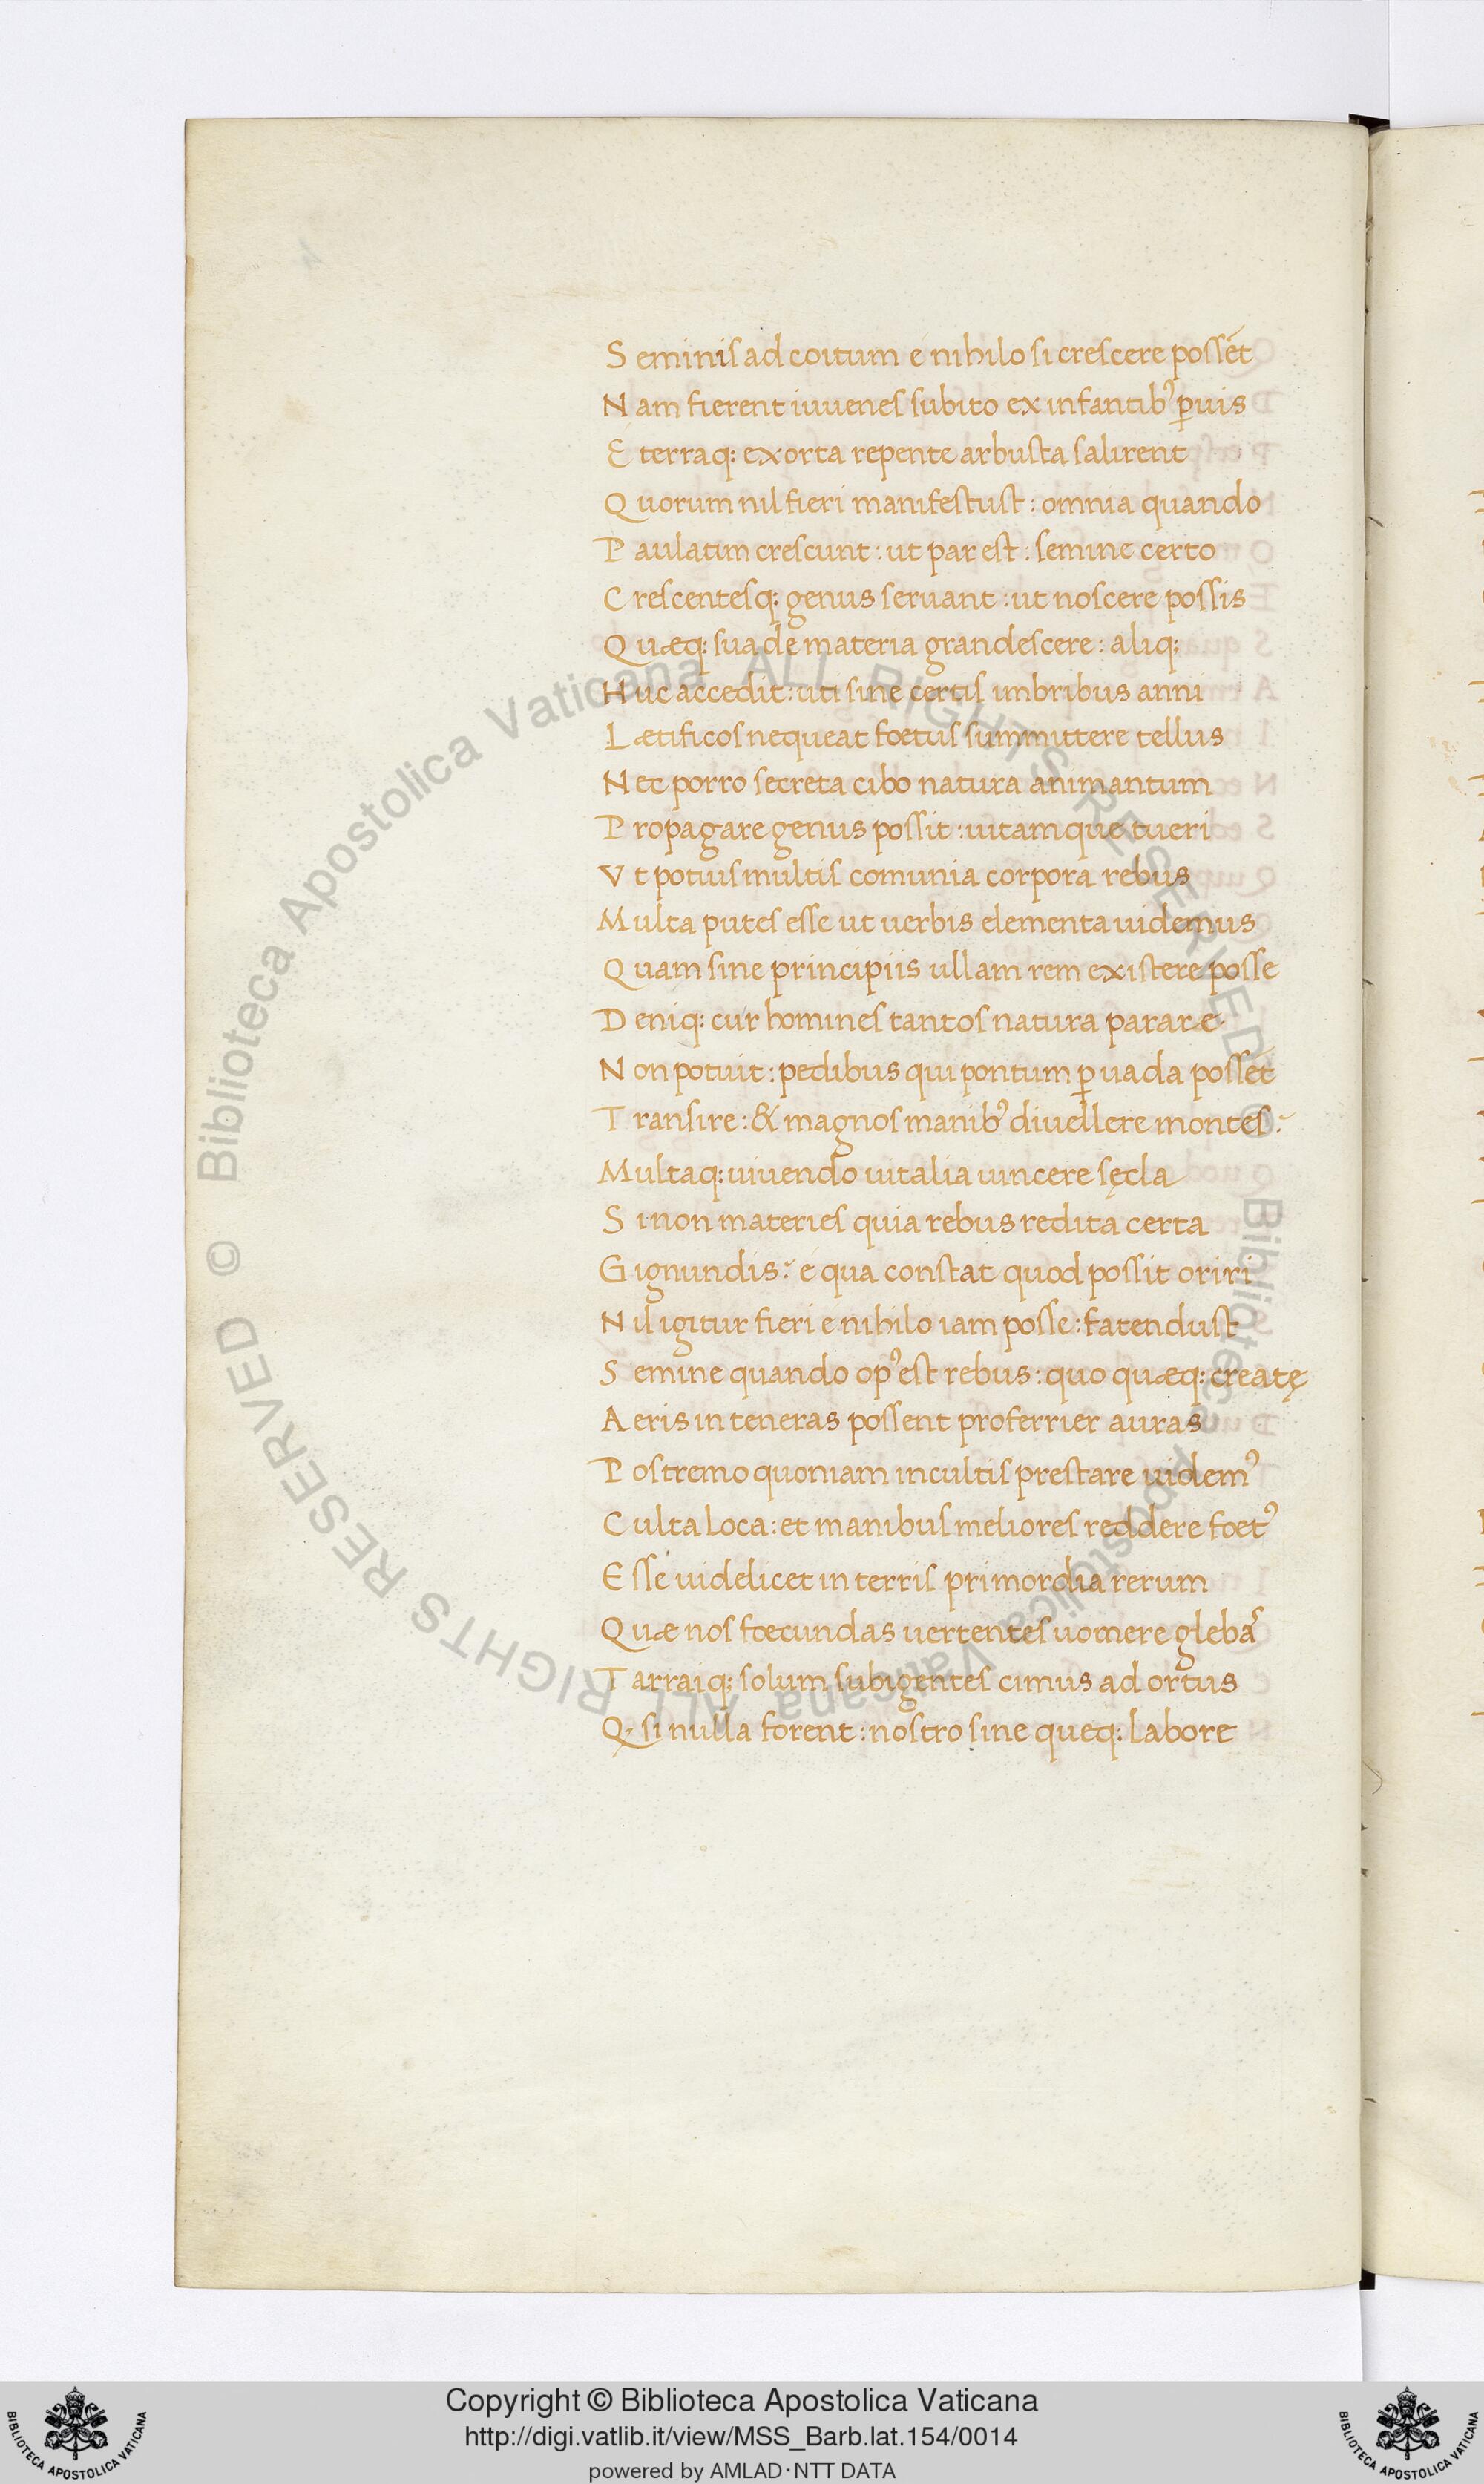 S eminis ad coitum e nihilo si crescere possēt
N am fierent iuuenes subito ex infantibꝰ ꝑuis
E terraq: exorta repente arbusta salirent
Q uorum nil fieri manifestust : omnia quando
P aulatim crescunt : ut par est : semine certo
C rescentesq: genus seruant : ut noscere possis
Q uæq: sua de materia grandescere : aliq;
H uc accedit : uti sine certis imbribus anni
L ætificos nequeat foetus summittere tellus
N ec porro secreta cibo natura animantum
P ropagare genus possit : uitamque tueri
V t potius multis comunia corpora rebus
M ulta putes esse ut uerbis elementa uidemus
Q uam sine principiis ullam rem existere posse
D eniq: cur homines tantos natura parare
N on potuit : pedibus qui pontum ꝑ uada possēt
T ransire : & magnos manibꝰ diuellere montes :
M ultaq: uiuendo uitalia uincere sęcla
S i non materies quia rebus redita certa
G ignundis : e qua constat quod possit oriri
N il igitur fieri e nihilo iam posse : fatendust
S emine quando opꝰ est rebus : quo quæq: creatę
A eris in teneras possent proferrier auras
P ostremo quoniam incultis prestare uidemꝰ
C ulta loca : et manibus meliores reddere foetꝰ
E sse uidelicet in terris primordia rerum
Q uæ nos foecundas uertentes uomere glebas
T arraiq; solum subigentes cimus ad ortus
Q. si nulla forent : nostro sine queq: labore
© Biblioteca Apostolica Vaticana ALL RIGHTS RESERVED
© Biblioteca Apostolica Vaticana ALL RIGHTS RESERVED
Copyright © Biblioteca Apostolica Vaticana
http://digi.vatlib.it/view/MSS_Barb.lat.154/0014
powered by AMLAD·NTT DATA
BIBLIOTECA APOSTOLICA VATICANA
BIBLIOTECA APOSTOLICA VATICANA